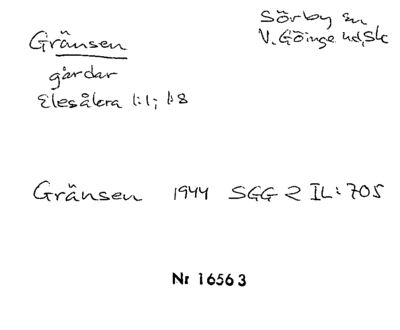 Gränsen
gårdar
Elesåkra 1:1; 1:8
Sörby sn
V. Göinge hd, Sk
Gränsen 1944 SGG 2 IL: 705
Nr 16563